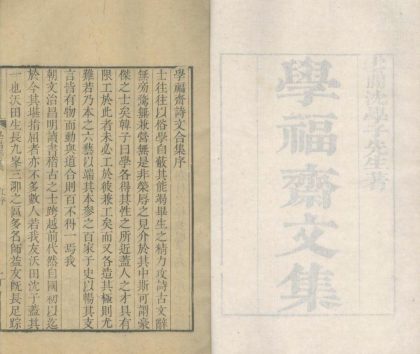 雲間沈學子先生著
學福齋文集
學福齋詩文合集序
士往往以俗學自蔽其能竭畢生之精力攻詩古文辭
無旁騖無兼營無是非榮辱之見介於其中斯可謂豪
傑之士矣韓子曰學各得其性之所近蓋人之才具有
限工於此者未必工於彼兼工矣而又各造其極則尤
難若乃本之六藝以端其本參之百家子史以暢其支
言皆有物而動與道合則百不得一焉我
朝文治昌明讀書稽古之士跨越前代然自國初以迄
於今其堪指屈者亦不多數人若我友沃田沈子蓋其
一也沃田生長九峯三泖之區多名師益友旣長足踪